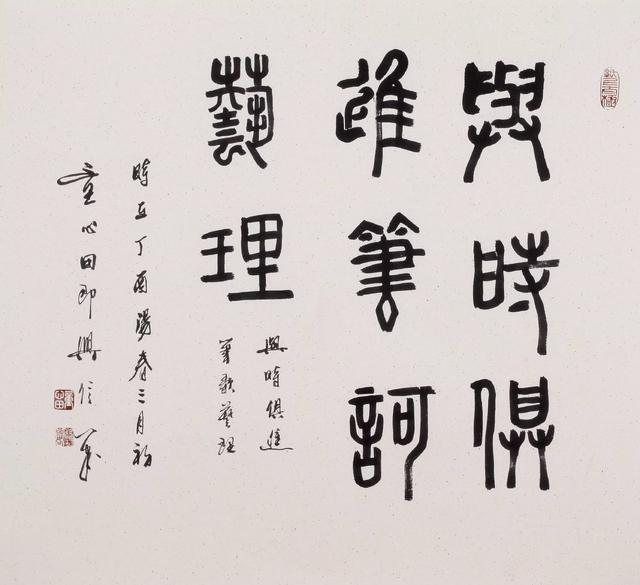 與時俱
進筆訶
藝理
與時俱進
筆歌藝理
時在丁酉陽春三月初
童心田即興信筆